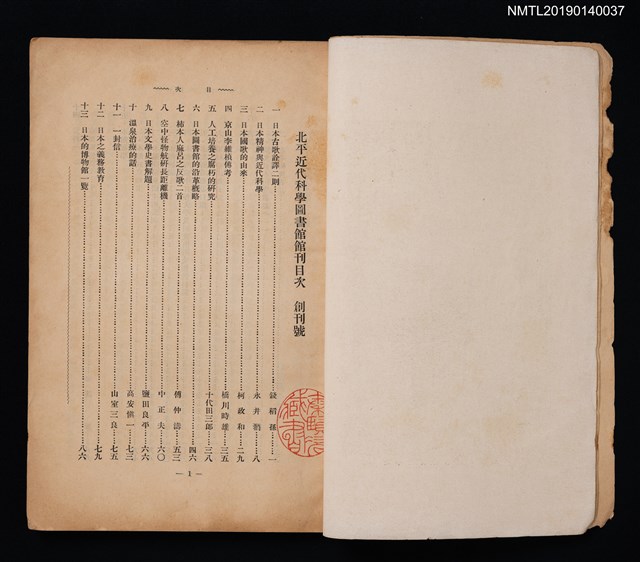 NMTL20190140037
目次
北平近代科學圖書館館刊目次 創刊號
一 日本古歌詮譯二則 錢稻孫 一
二 日本精神與近代科學 永井 八
三 日本國歌的由來 柯政和 二九
四 京山李維楨傳考 橋川時雄 三五
五 人工培養之腐朽的研究 十代田三郎 三八
六 日本圖書館的沿革概略 四六
七 柿本人麻呂之反歌二首 傅仲濤 五三
八 空中怪物航研長距離機 中正夫 六〇
九 日本文學史書解題 鹽田良平 六六
十 溫泉治療的話 高安愼一 七三
十一 一封信 山室三良 七五
十二 日本之義務教育 七九
十三 日本的博物館一覽 八六
— 1 —